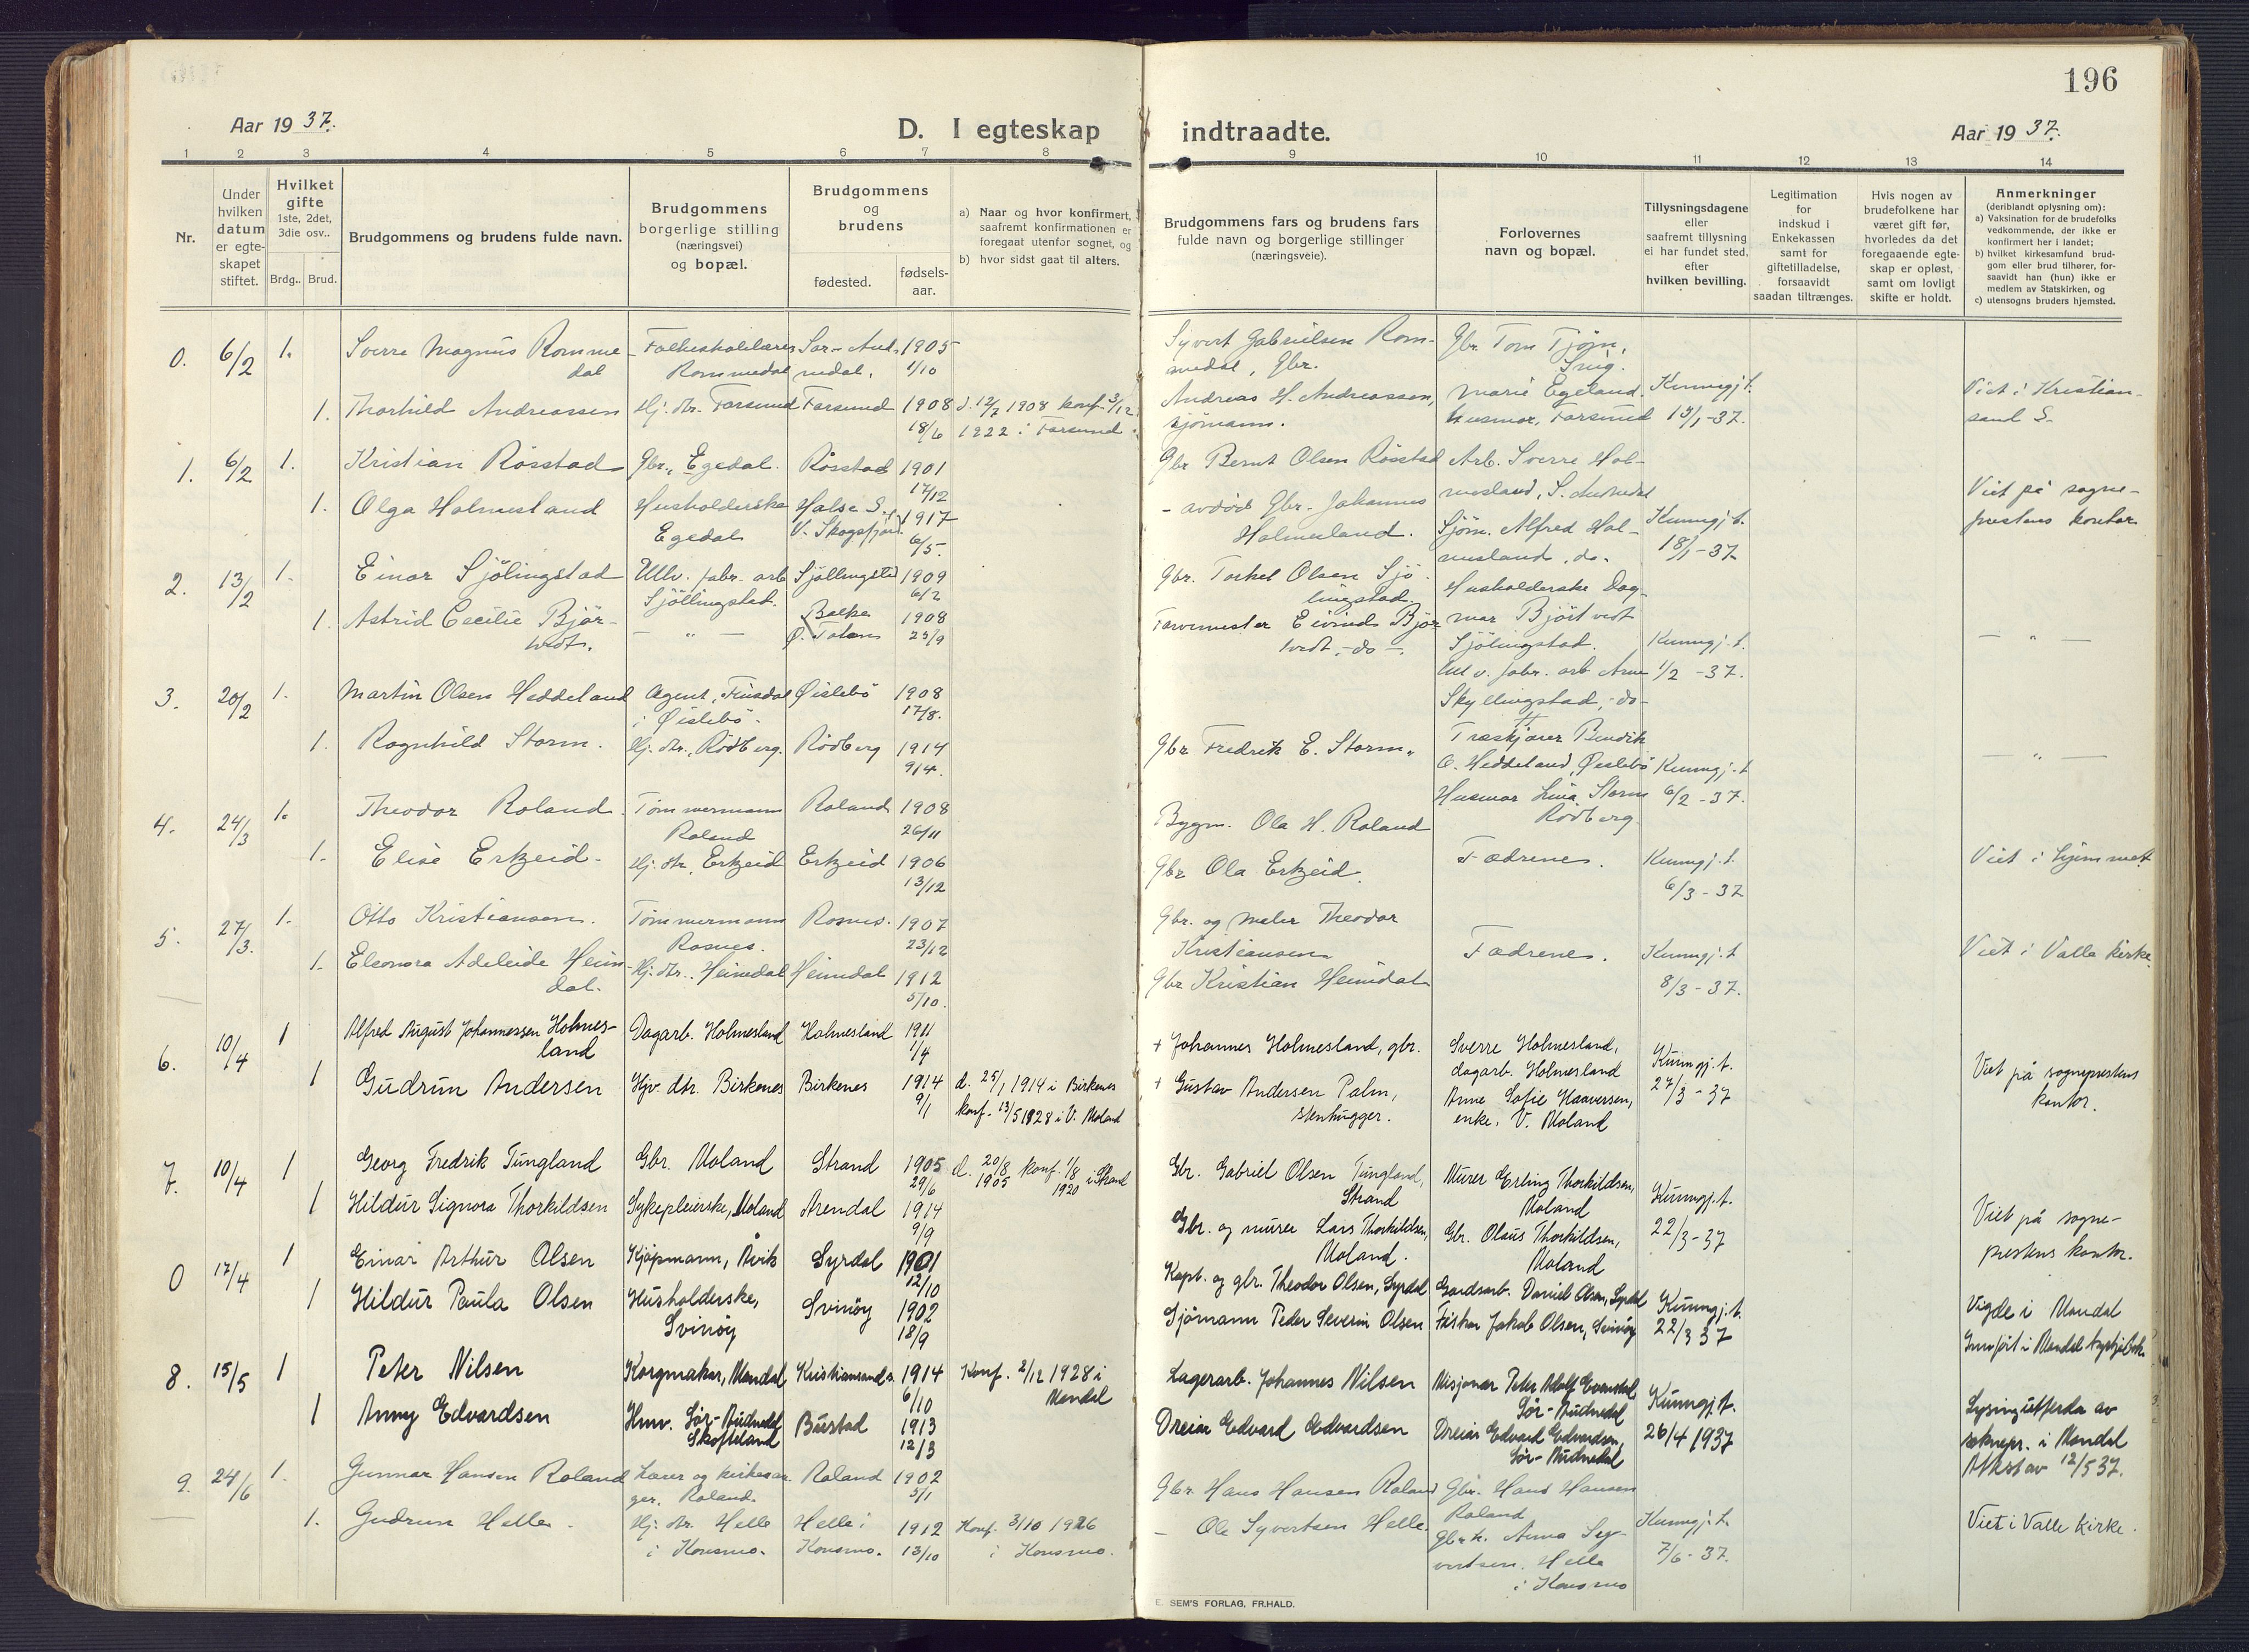 196
Aar 19 37.
D. I egteskap indtraadte.
Aar 19 37.
1 2 3 4 5 6 7 8 9 10 11 12 13 14
Nr.
Under hvilken datum er egte-skapet stiftet.
Hvilket gifte 1ste, 2det, 3die osv..
Brdg.. Brud.
Brudgommens og brudens fulde navn.
Brudgommens borgerlige stilling (næringsvei) og bopæl.
Brudgommens og brudens
fødested.
fødsels-aar.
a) Naar og hvor konfirmert, saafremt konfirmationen er foregaat utenfor sognet, og
b) hvor sidst gaat til alters.
Brudgommens fars og brudens fars fulde navn og borgerlige stillinger (næringsveie).
Forlovernes navn og bopæl.
Tillysningsdagene eller saafremt tillysning ei har fundet sted, efter hvilken bevilling.
Legitimation for indskud i Enkekassen samt for giftetilladelse, forsaavidt saadan tiltrænges.
Hvis nogen av brudefolkene har været gift før, hvorledes da det foregaaende egte-skap er opløst, samt om lovligt skifte er holdt.
Anmerkninger (deriblandt oplysning om):
a) Vaksination for de brudefolks vedkommende, der ikke er konfirmert her i landet;
b) hvilket kirkesamfund brud-gom eller brud tilhører, for-saavidt han (hun) ikke er medlem av Statskirken, og
c) utensogns bruders hjemsted.
0. 6/2 1. Sverre Magnus Romme-dal Folkeskolelærer Rommedal Sør-Aud-nedal. 1905 1/10 Syvert Gabrielsen Rom-medal, Gbr. Gbr. Tom Tjøm,
1. Thorhild Andreassen Hj. dtr. Farsund Farsund 1908 18/6 d. 12/7 1908 konf. 3/12 1922 i Farsund Andreas H. Andreassen, sjømann. Marie Egeland, husmor, Farsund Kunngj. t. 15/1-37. Viet i Kristian-sand S.
1. 6/2 1. Kristian Rösstad Gbr., Egedal. Rösstad 1901 17/12 Gbr Bernt Olsen Rösstad Arb. Sverre Hol-mesland, S. Audnedal
1. Olga Holmesland Husholderske Egedal Halse S. V. Skogsfjord. 1917 6/5. - avdöd Gbr. Johannes Holmesland. Sjöm. Alfred Hol-mesland, do. Kunngj. t. 18/1-37 Viet på sogne-prestens kontor
2. 13/2 1. Einar Sjölingstad Ullv. fabr. arb Sjöllingstad. Sjöllingstad 1909 6/2 Gbr. Torkel Olsen Sjö-lingstad. Husholderske Dag-mar Björtvedt Sjölingstad.
1. Astrid Cecilie Bjør-tvedt. - " - Balke Ø. Toten 1908 23/9 Farvemester Eivind Björ-tvedt, -do-. Ull v. fabr. arb Arne Skyllingstad, -do- Kunngj. t. 1/2 -37. - " -
3. 20/2 1. Martin Olsen Heddeland Agent, Finsdal i Øislebö. Øislebö 1908 17/8. Træskjærer Bendik O. Heddeland, Øislebö
1. Ragnhild Storm. Hj. dtr., Rödberg. Rödberg 1914 9/4. Gbr Fredrik E. Storm. Husmor Lina Storm Rödberg. Kunngj. t 6/2 -37. - " -
4. 24/3 1. Theodor Roland. Tömmermann Roland Roland 1908 26/11 Bygm. Ola H. Roland
1. Elise Erkzeid. Hj. dtr, Erkzeid Erkzeid 1906 13/12 Gbr Ola Erkzeid. Fædrene. Kunngj. t. 6/3-37 Viet i hjemmet
5. 27/3. 1. Otto Kristiansen. Tömmermann Rosnes. Rosnes. 1907 23/12 Gbr. og maler Theodor Kristiansen
1. Eleonora Adeleide Heim-dal. Hj. dtr., Heimdal Heimdal 1912 5/10. Gbr Kristian Heimdal Fædrene. Kunngj. t 8/3-37. Viet i Valle kirke.
6. 10/4 1 Alfred August Johannessen Holmes-land Dagarb. Holmesland Holmesland 1911 1/4 + Johannes Holmesland, gbr. Sverre Holmesland, dagarb. Holmesland
1 Gudrun Andersen Hjv. dtr. Birkenes Birkenes 1914 9/1 d. 25/1 1914 i Birkenes konf. 13/5 1928 i V. Moland + Gustav Andersen Palm, stenhugger. Anne Sofie Haaversen, enke, V. Moland Kunngj. t. 27/3-37 Viet på sogneprestens kontor.
7. 10/4 1 Georg Fredrik Tungland Gbr. Moland Strand 1905 29/6 d. 20/8 1905 konf. 1/8 1920 i Strand Gbr. Gabriel Olsen Tungland, Strand Murer Erling Thorkildsen, Moland
1 Hildur Signora Thorkildsen Sykepleierske, Moland Arendal 1914 9/9 Gbr. og murer Lars Thorkildsen, Moland. Gbr. Olaus Thorkildsen, Moland Kunngj. t. 22/3-37 Viet på sogne-prestens kontor.
0 17/4 1 Einar Arthur Olsen Kjöpmann, Åvik Syrdal 1901 12/10 Kapt. og gbr. Theodor Olsen, Syrdal Gardsarb. Daniel Olsen, Syrdal
1 Hildur Paula Olsen Husholderske, Svinöy Svinöy 1902 18/9 Sjömann Peder Severin Olsen Fisker Jakob Olsen, Svinöy Kunngj. t. 22/3 37 Vigde i Mandal Innfört i Mandal kyrkjebok
8. 15/5 1 Peter Nilsen Korgmaker, Mandal Kristiansand s. 1914 6/10 Konf. 2/12 1928 i Mandal Lagerarb. Johannes Nilsen Misjonær Peter Adolf Evensdal Sör-Audnedal
1 Anny Edvardsen Hmv. Sör-Audnedal Skofteland Bustad 1913 12/3 Dreiar Edvard Edvardsen Dreiar Edvard Edvardsen, Sör-Audnedal Kunngj. t. 26/4 1937 Lysing utferda av soknepr. i Mandal Attest av 12/5 37.
9. 24/6 1. Gunnar Hansen Roland Lærer og kirkesan-ger. Roland. Roland 1902 5/1 Gbr. Hans Hansen Roland Gbr. Hans Hansen Roland
1. Gudrun Helle. Hj. dtr. Helle i Konsmo. Helle i Konsmo. 1912 13/10 Konf. 3/10 1926 i Konsmo. - Ole Syvertsen Helle. Gbr.k. Anna Sy-vertsen. Helle i Konsmo Kunngj. t. 7/6-37. Viet i Valle Kirke.
E. SEM'S FORLAG, FR.HALD.